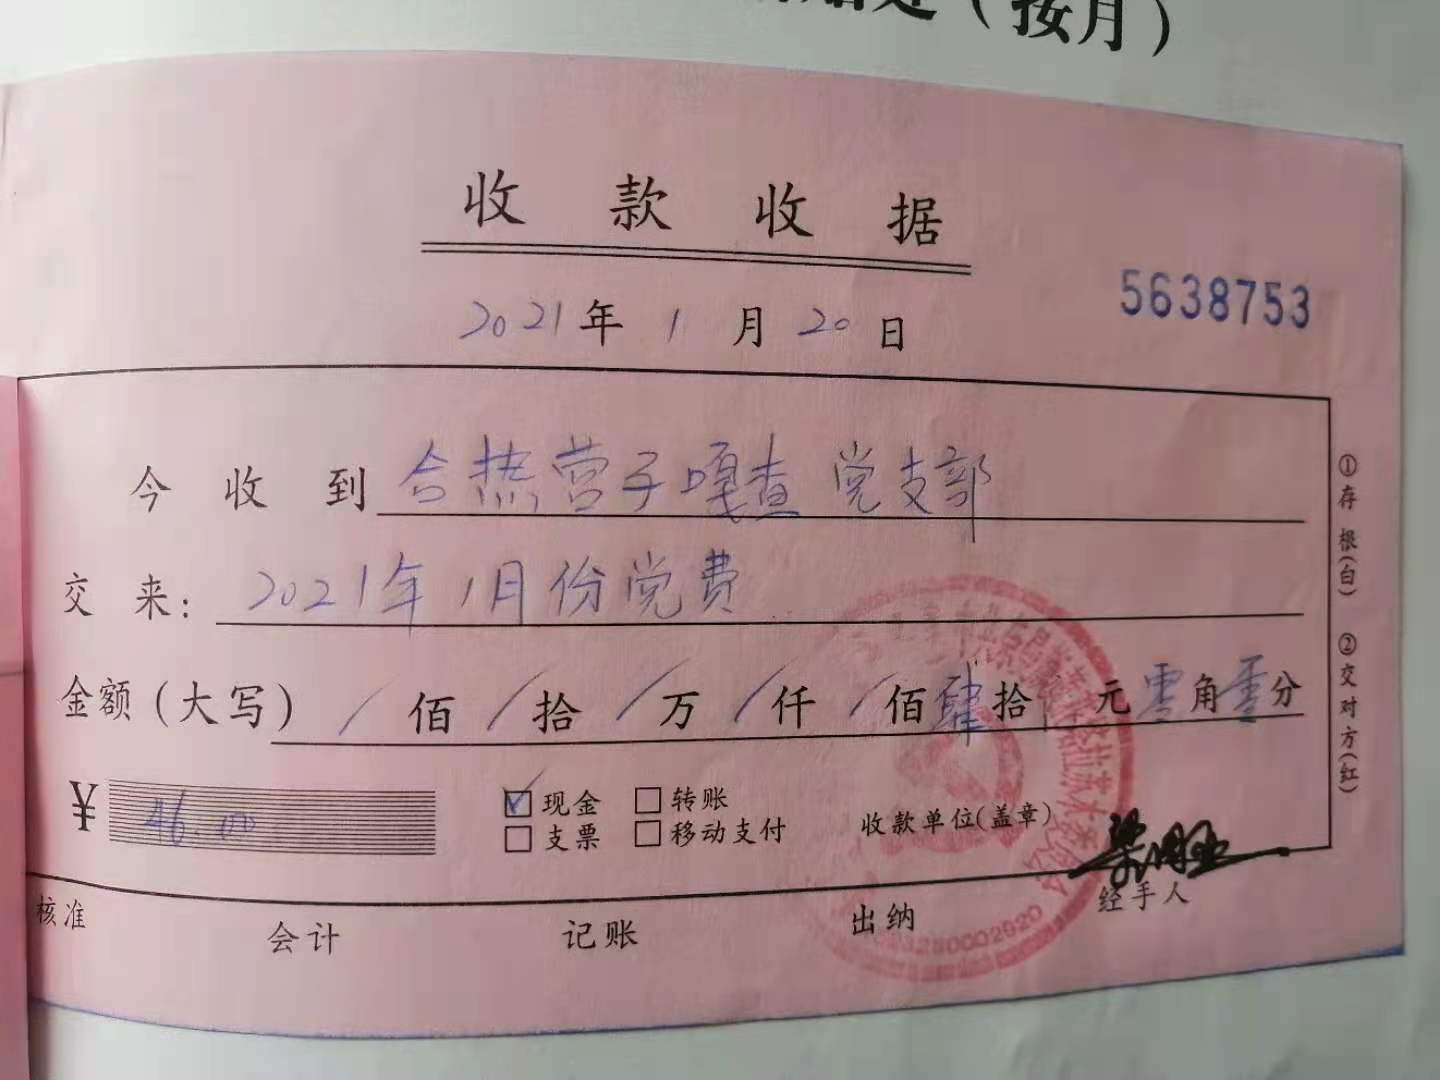 （按月）
收款收据
2021年1月20日
5638753
今收到 合热营子嘎查党支部
交来: 2021年1月份党费
金额(大写) / 佰 / 拾 / 万 / 仟 / 佰肆拾 元零角零分
¥ 46.00
☑现金 □转账
□支票 □移动支付
收款单位(盖章)
核准 会计 记账 出纳 经手人
①存根(白) ②交对方(红)